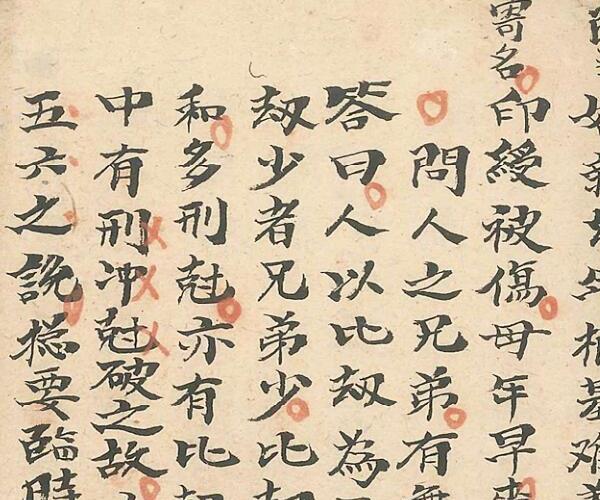 寄名印綬被傷母年早
問人之兄弟有
答曰人以比刼為
刼少者兄弟少比
和多刑尅亦有比
中有刑冲尅破之故
五六之說揔要臨時